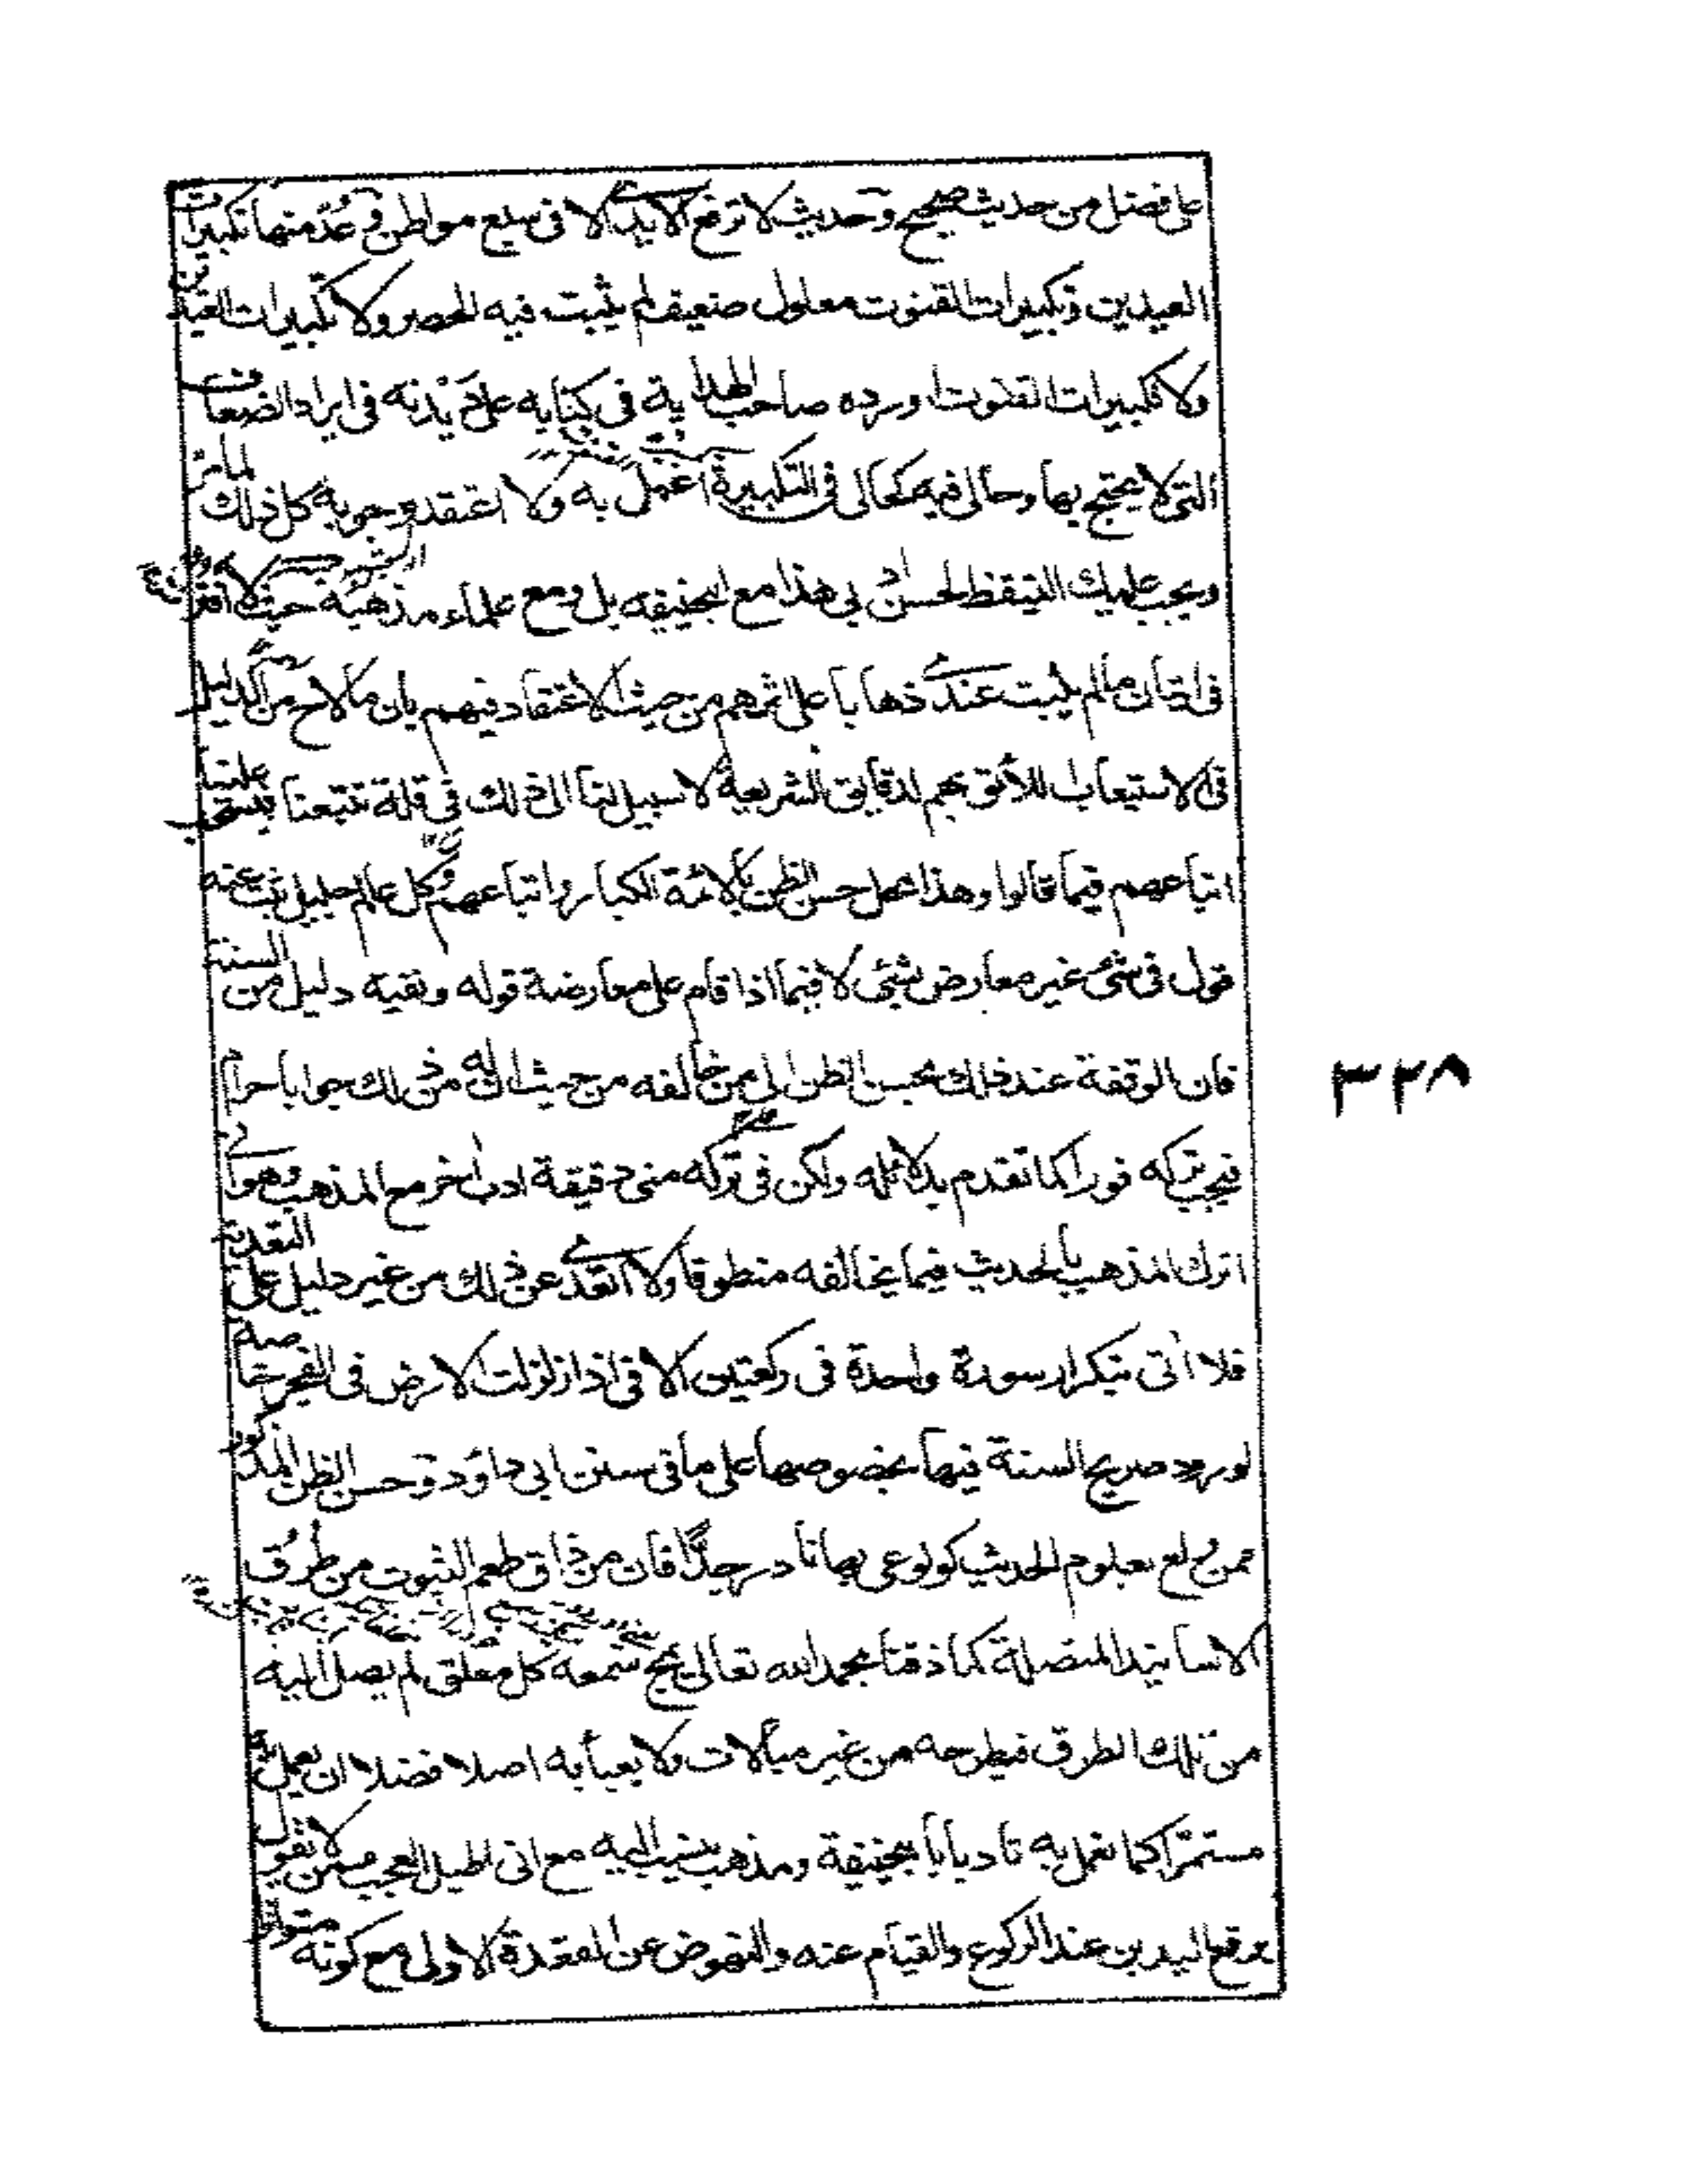 على فضل من حديث صحيح وحديث لا ترفع الايدى الا فى سبع مواطن وعد منها تكبيرات
العيدين وتكبيرات القنوت معلول ضعيف لم يثبت فيه الحصر ولا تكبيرات العيدين
ولا تكبيرات القنوت اورده صاحب الهداية فى كتابه على ديدنه فى ايراد الضعاف
التى لا يحتج بها وحالى فيه كحالى فى التكبيرة اعمل به ولا اعتقد وجوبه كل ذلك لما مر
ويجب عليك التيقظ لحسن ادبى هذا مع ابيحنيفه بل ومع علماء مذهبه حيث لا
فى اتيان ما لم يثبت عندى ذهابا على اثرهم من حيث الاعتقاد فيهم بان ما لاح من الدليل
فى الاستيعاب اللائق بهم لدقايق الشريعة لا سبيل لنا الى ذلك فى قلة تتبعنا فيستحب علينا
اتباعهم فيما قالوا وهذا محل حسن الظن بالائمة الكبار واتباعهم وكل عالم جليل ثبت عنه
قول فى شئ غير معارض بشئ لا فيما اذا قام على معارضة قوله ونفيه دليل من السنة
فان الوقفة عند ذلك بحسن الظن الى من خالفه من حيث ان له من ذلك جوابا حرام
فيجب تركه فورا كما تقدم بدلائله ولكن فى تركه منى دقيقة ادب اخر مع المذهب وهو انى
اترك المذهب بالحديث فيما يخالفه منطوقا ولا اتعدى عن ذلك من غير دليل على التعدية
فلا اتى بتكرار سورة واحدة فى ركعتين الا فى اذا زلزلت الارض فى الفجر خاصة
لورود صريح السنة فيها بخصوصها على ما فى سنن ابى داؤد وحسن الظن المذكور
ممن ولع بعلوم الحديث كولوعى بها نادر جدًّا فان من ذاق طعم الثبوت من طرق
الاسانيد المتصلة كما ذقنا بحمد الله تعالى يمج سمعه كل معلق لم يصل اليه
من تلك الطرق فيطرحه من غير مبالات ولا يعبأ به اصلا فضلا ان يعمل به
مستمرّا كما نعمل به تادبا بابيحنيفة ومذهب ينسب اليه مع انى اطيل العجب ممن لا يقول
برفع اليدين عند الركوع والقيام عنه والنهوض عن القعدة الاولى مع كونه متواترا
٣٢٨